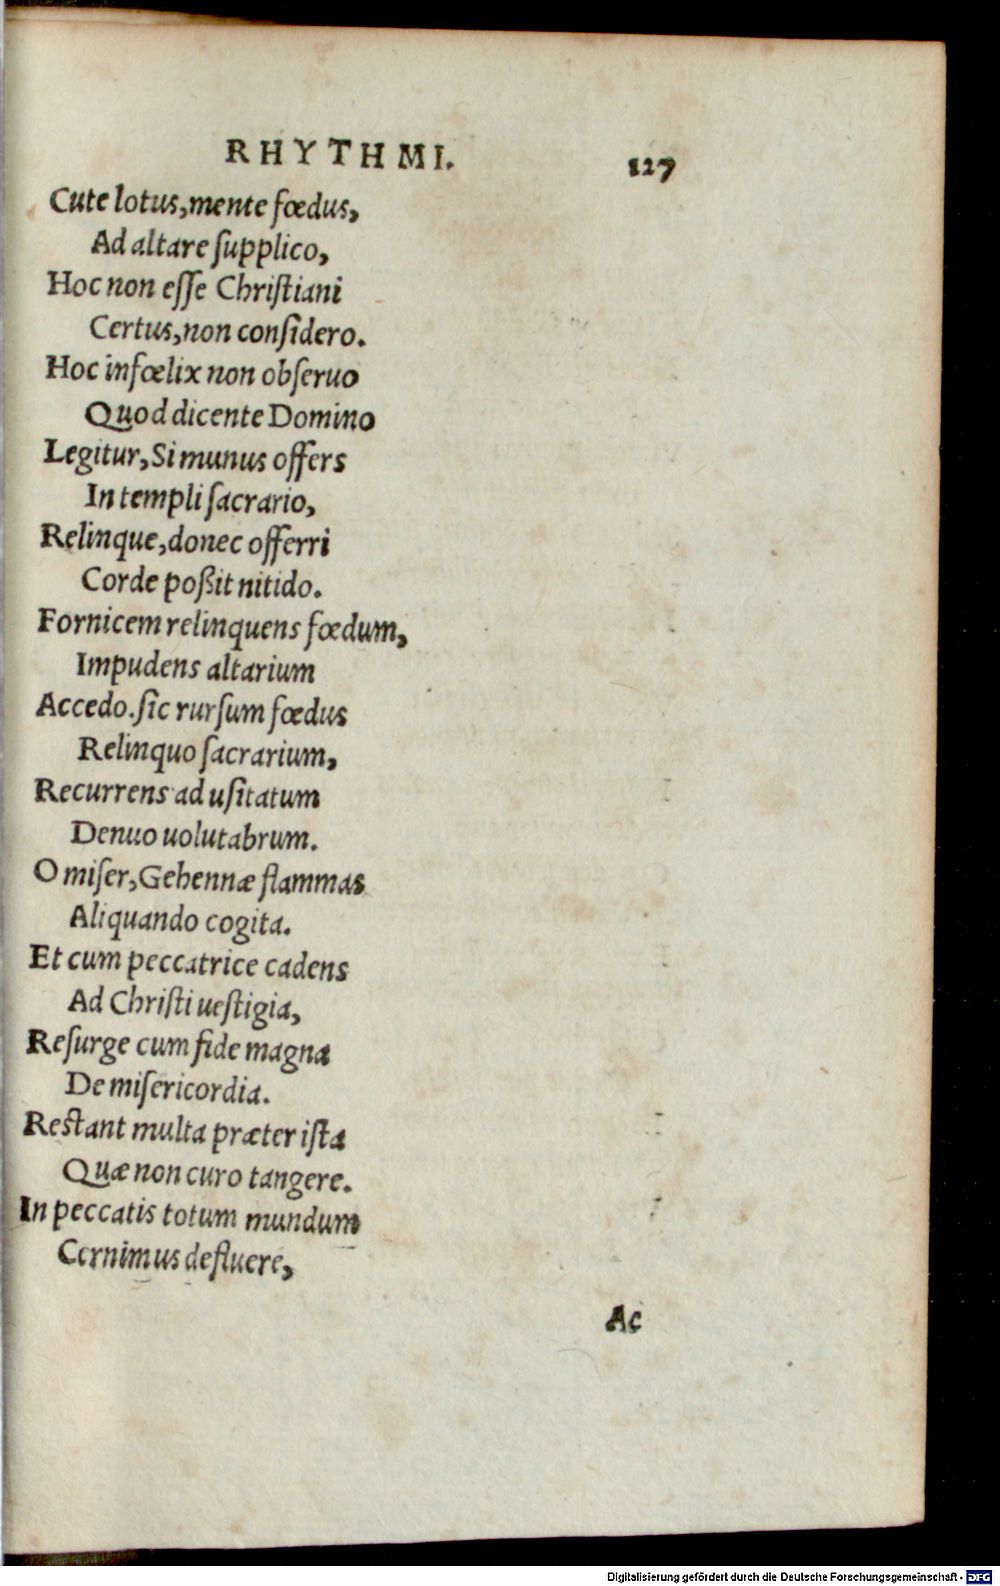 RHYTHMI. 127
Cute lotus, mente fœdus,
Ad altare ſupplico,
Hoc non eſſe Chriſtiani
Certus, non conſidero.
Hoc infœlix non obſeruo
Quod dicente Domino
Legitur, Si munus offers
In templi ſacrario,
Relinque, donec offerri
Corde poßit nitido.
Fornicem relinquens fœdum,
Impudens altarium
Accedo. ſic rurſum fœdus
Relinquo ſacrarium,
Recurrens ad uſitatum
Denuo uolutabrum.
O miſer, Gehennæ flammas
Aliquando cogita.
Et cum peccatrice cadens
Ad Chriſti ueſtigia,
Reſurge cum fide magna
De miſericordia.
Restant multa præter iſta
Quæ non curo tangere.
In peccatis totum mundum
Cernimus defluere,
Ac
Digitalisierung gefördert durch die Deutsche Forschungsgemeinschaft - DFG